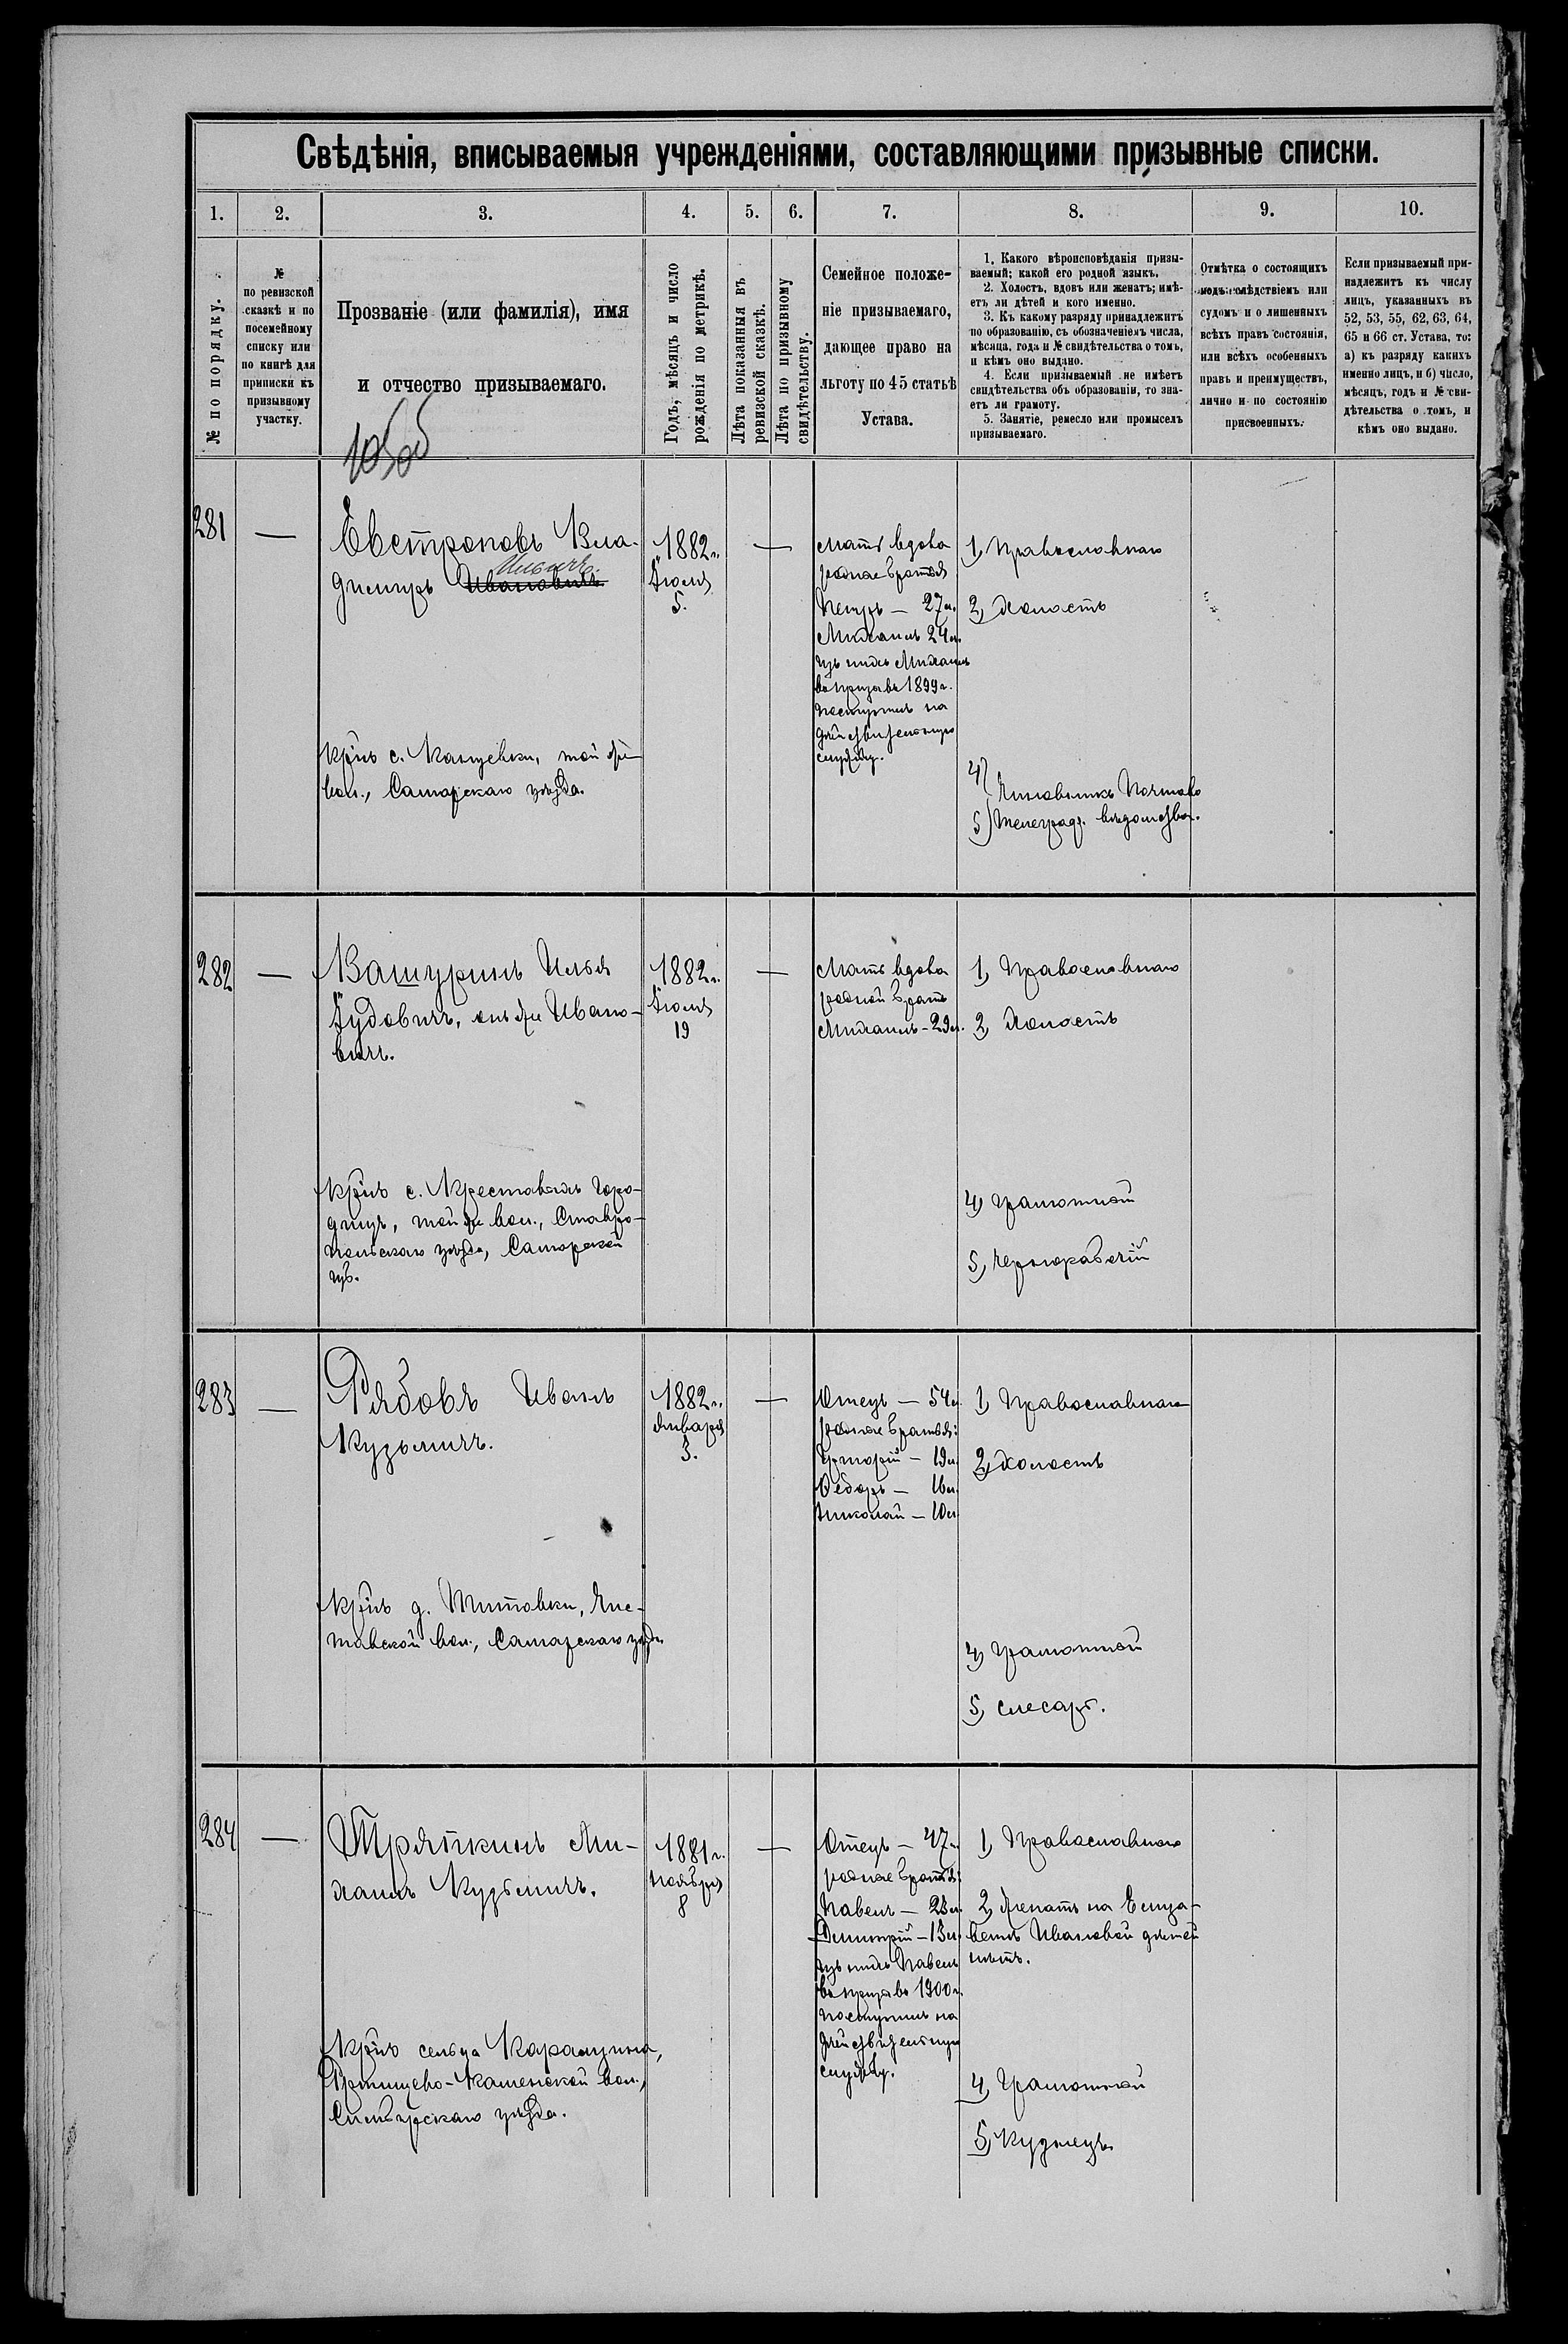 Свѣдѣнія, вписываемыя учрежденіями, составляющими призывные списки.
1. 2. 3. 4. 5. 6. 7. 8. 9. 10.
№ по порядку.
№
по ревизской
сказкѣ и по
посемейному
списку или
по книгѣ для
приписки къ
призывному
участку.
Прозваніе (или фамилія), имя
и отчество призываемаго.
Годъ, мѣсяцъ и число
рожденія по метрикѣ.
Лѣта показанныя въ
ревизской сказкѣ.
Лѣта по призывному
свидѣтельству.
Семейное положе-
ніе призываемаго,
дающее право на
льготу по 45 статьѣ
Устава.
1. Какого вѣроисповѣданія призы-
ваемый; какой его родной языкъ.
2. Холостъ, вдовъ или женатъ; имѣ-
етъ ли дѣтей и кого именно.
3. Къ какому разряду принадлежитъ
по образованію, съ обозначеніемъ числа,
мѣсяца, года и № свидѣтельства о томъ,
и кѣмъ оно выдано.
4. Если призываемый не имѣетъ
свидѣтельства объ образованіи, то зна-
етъ ли грамоту.
5. Занятіе, ремесло или промыселъ
призываемаго.
Отмѣтка о состоящихъ
подъ слѣдствіемъ или
судомъ и о лишенныхъ
всѣхъ правъ состоянія,
или всѣхъ особенныхъ
правъ и преимуществъ,
лично и по состоянію
присвоенныхъ.
Если призываемый при-
надлежитъ къ числу
лицъ, указанныхъ въ
52, 53, 55, 62, 63, 64,
65 и 66 ст. Устава, то:
а) къ разряду какихъ
именно лицъ, и б) число,
мѣсяцъ, годъ и № сви-
дѣтельства о томъ, и
кѣмъ оно выдано.
281
—
Евстроповъ Вла-
Ильичъ.
димиръ Ивановичъ
крнъ с. той же
вол., Самарскаго уѣзда.
1882 г.
Іюля
5.
—
Мать вдова
родные братья
Петръ — 27 л.
Михаилъ 24 л.
изъ нихъ Михаилъ
въ призывъ 1899 г.
поступилъ на
дѣйствительную
службу.
1, Православнаго
2, Холостъ
4)
Чиновникъ Почтово
5) Телеграф. вѣдомства.
282
—
Вашуринъ Илья
Іудовичъ, онъ же Ивано-
вичъ.
крнъ с. Крестовыхъ Горо-
дищъ, той же вол., Ставро-
польскаго уѣзда, Самарской
губ.
1882 г.
Іюля
19
—
Мать вдова
родной братъ
Михаилъ — 29 л.
1, Православнаго
2, Холостъ
4, грамотный
5, чернорабочій
283
—
Рябовъ Иванъ
Кузьмичъ.
крнъ д. Титовки,
вол., Самарскаго уѣзда
1882 г.
Января
3.
—
Отецъ — 54 л.
родные братья:
Григорій — 19 л.
Ѳедоръ — 16 л.
Николай — 10 л.
1, Православнаго
2, Холостъ
4, грамотный
5, слесарь.
284
—
Тряпкинъ Ми-
хаилъ Кузьмичъ.
крнъ сельца
вол.,
уѣзда.
1881 г.
Ноября
8
—
Отецъ — 47 л.
родные братья:
Павелъ — 23 л.
Димитрій — 13 л.
изъ нихъ Павелъ
въ призывъ 1900 г.
поступилъ на
дѣйствительную
службу.
1, Православнаго
2, Женатъ на Елиза-
ветѣ Ивановой дѣтей
нѣтъ.
4, Грамотный
5, Кузнецъ